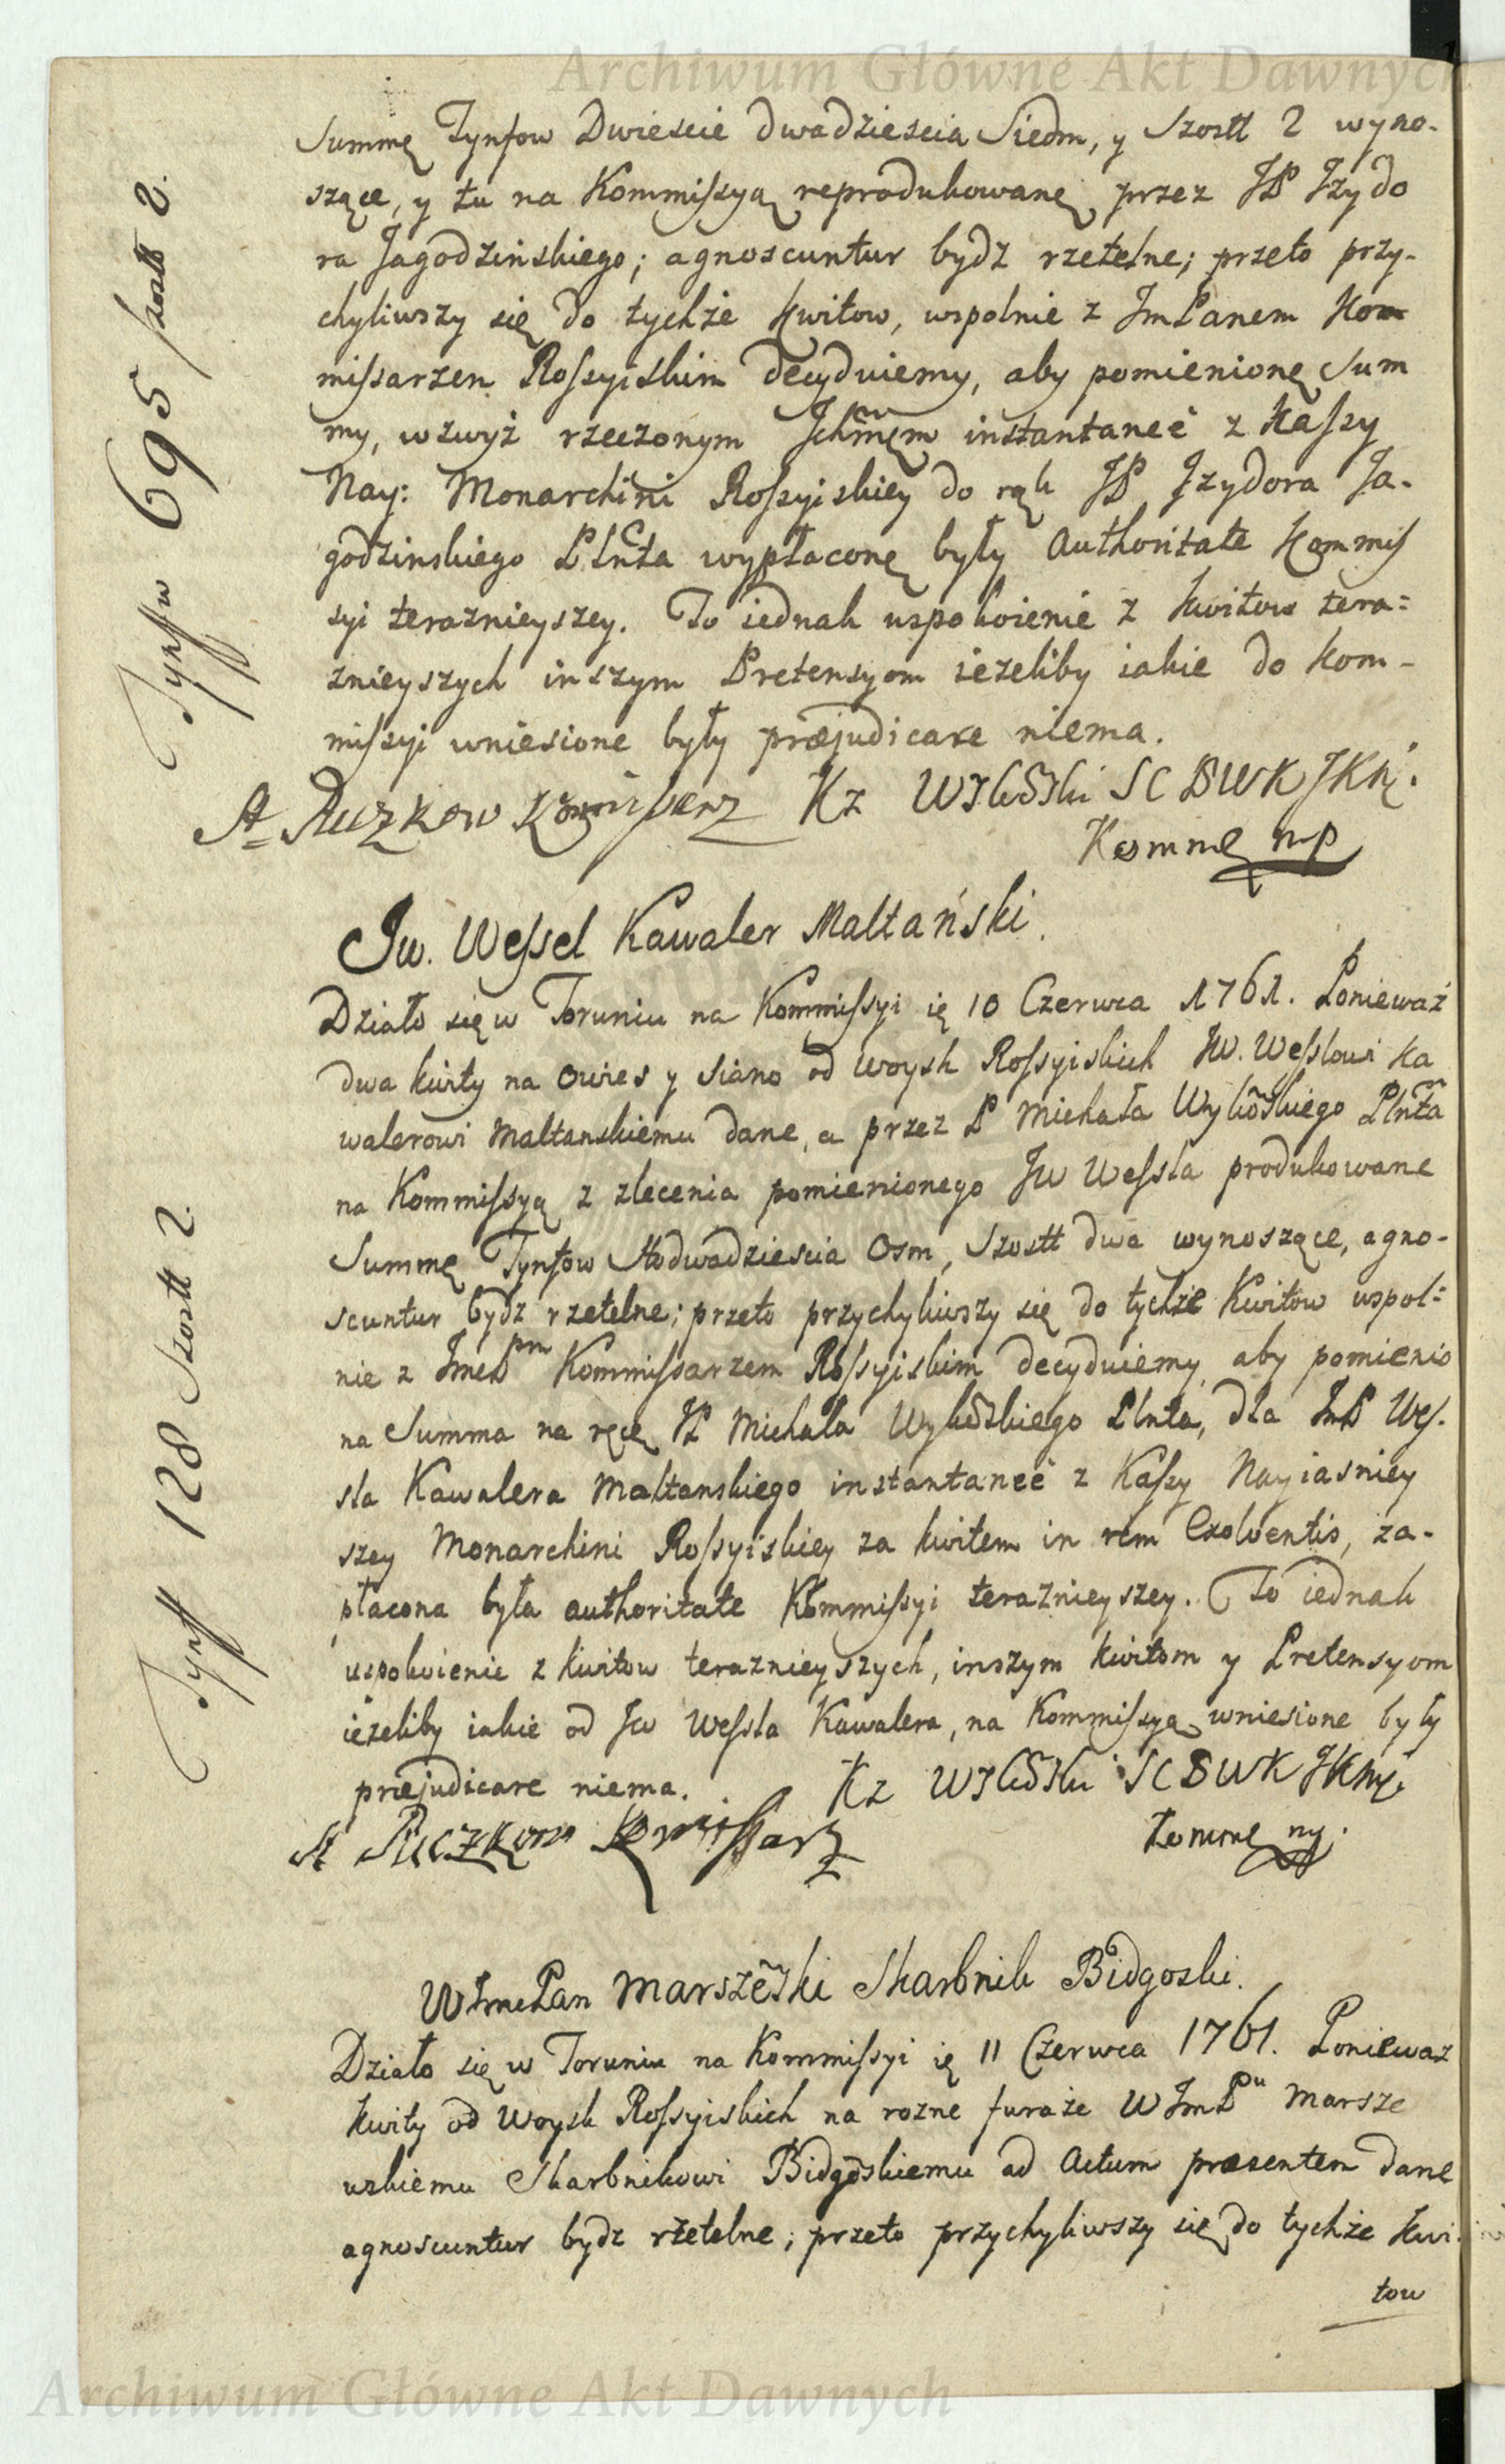 Archiwum Główne Akt Dawnych
Summę Tynfow Dwieście dwadzieścia Siedm, y Szostt 2 wyno-
szące, y tu na Kommissyą reprodukowanę przez JP Jzydo
ra Jagodzinskiego; agnoscuntur bydz rzetelne; przeto przy-
chyliwszy się do tychże kwitow, wspolnie z JmPanem Kom
missarzen Rossyiskim decyduiemy, aby pomienionę Sum
my, wzwyż rzeczonym instantaneé z Kassy
Nay: Monarchini Rossyiskiey do rąk JP Jzydora Ja-
godzinskiego Plnta wypłaconę były Authoritate Kommis
syi teraznieyszey. To iednak uspokoienie z kwitow tera=
znieyszych inszym Pretensyom ieżeliby iakie do kom-
missyi wniesione były præjudicare niema.
Tynffw 695 szostt 2.
A Puczkow Kommissarz Kz SCBWKJKM.
Komme mp
Jw. Wessel Kawaler Maltański.
Działo się w Toruniu na Kommissyi ię 10 Czerwca 1761. Ponieważ
dwa kwity na Owies y Siano od woysk Rossyiskich JW. Wesslowi Ka
walerowi Maltanskiemu dane, a przez P Michała Plnta
na Kommissyą z zlecenia pomienionego JW Wessla produkowane
Summę Tynfow Stodwadziescia Osm, Szostt dwa wynoszące, agno-
scuntur bydz rzetelne; przeto przychyliwszy się do tychże Kwitow wspol=
nie z JmcPm Kommissarzem Rossyiskim decyduiemy, aby pomienio
na Summa na ręcę JP Michała Plnta, dla JmP Wes-
sla Kawalera Maltanskiego instantaneé z Kassy Nayiasniey
szey Monarchini Rossyiskiey za kwitem in rem Exolventis, za-
płacona była authoritate Kommissyi teraznieyszey. To iednak
uspokoienie z kwitow teraznieyszych, inszym kwitom y Pretensyom
ieżeliby iakie od Jw Wessla Kawalera, na Kommissyą wniesione były
præjudicare niema.
Tynff 128 Szostt 2.
Kz SCBWKJKM.
A Puczkow Kommissarz
Komme mp.
WJmcPan Skarbnik Bidgoski.
Działo się w Toruniu na Kommissyi ię 11 Czerwca 1761. Ponieważ
kwity od Woysk Rossyiskich na rozne furaże WJmPu Marsze
wskiemu Skarbnikowi Bidgoskiemu ad Actum præsentem dane
agnoscuntur bydz rzetelne; przeto przychyliwszy się do tychże kwi-
tow
Archiwum Główne Akt Dawnych